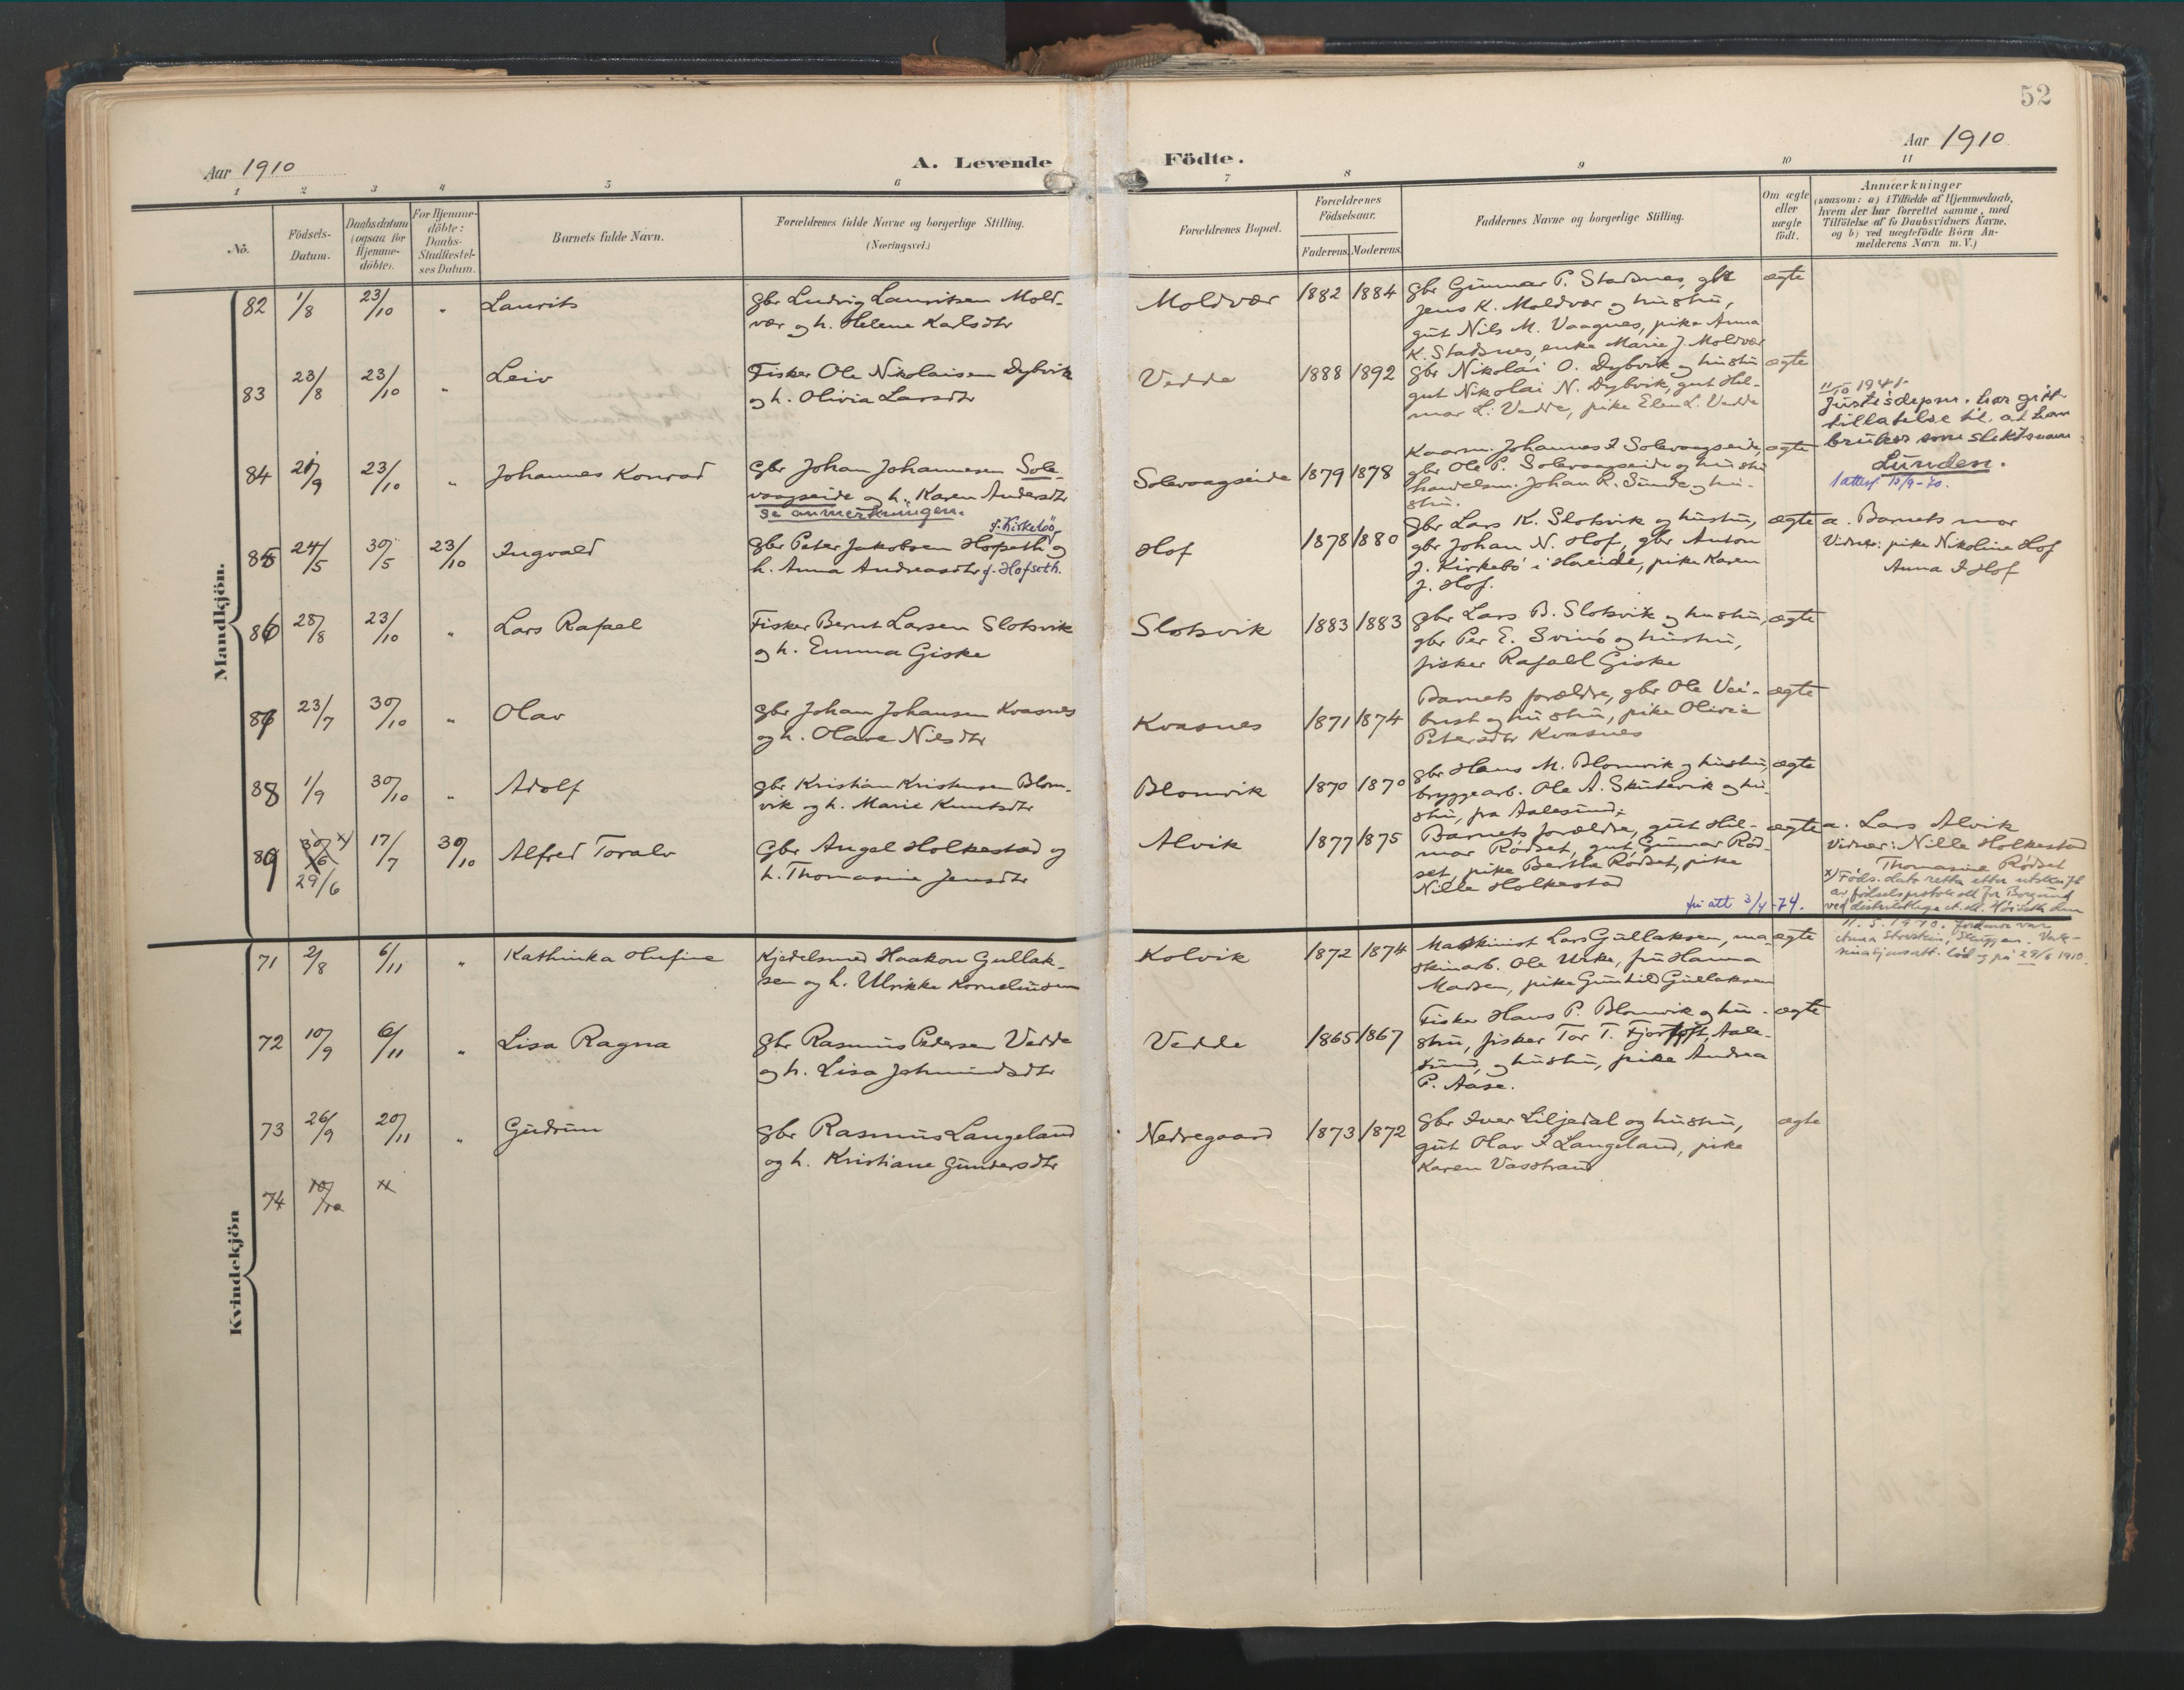 52
Aar 1910
A. Levende Födte.
Aar 1910
1 2 3 4 5 6 7 8 9 10 11
No.
Födsels-
Datum.
Daabsdatum
(ogsaa for
Hjemme-
döbte).
For Hjemme-
döbte:
Daabs-
Stadfæstel-
ses Datum.
Barnets fulde Navn.
Forældrenes fulde Navne og borgerlige Stilling.
(Næringsvei.)
Forældrenes Bopæl.
Forældrenes
Födselsaar.
Faderens. Moderens.
Faddernes Navne og borgerlige Stilling.
Om ægte
eller
uægte
født.
Anmærkninger
(saasom: a) i Tilfælde af Hjemmedaab,
hvem der har forrettet samme, med
Tilföielse af to Daabsvidners Navne.
og b) ved uægtefödte Börn An-
melderens Navn m. V.)
Mandkjön.
82 1/8 23/10 " Laurits
gbr Ludvig Lauritsen Mold-
vær og h. Helene Karlsdtr
Moldvær 1882 1884
gbr Gunnar P. Stadsnes, gbr
Jens K. Moldvær og hustru,
gut Nils M. Vaagnes, pike Anna
K. Stadsnes, enke Marie J. Moldvær
ægte
83 23/8 23/10 " Leiv
Fisker Ole Nikolaisen Dybvik
og h. Olivia Larsdtr
Vedde 1888 1892
gbr Nikolai O. Dybvik og hustru
gut Nikolai N. Dybvik, gut Hil-
mar L. Vedde, pike Elen L. Vedde
ægte
84 21/9 23/10 " Johannes Konrad
gbr Johan Johannesen Sole-
vaagseide og h. Karen Andersdtr
Se anmerkningen.
Solevaagseide 1879 1878
Kaarm. Johannes I Solevaagseide,
gbr Ole P. Solevaagseide og hustru
handelsm. Johan R. Sunde og hu-
stru.
ægte
11/10 1941.
Justisdepm. har gitt
tillatelse til at han
bruker som slektsnavn
Lunden.
1 attest 15/9-70.
85 24/5 30/5 23/10 Ingvald
f. Kirkebö
gbr Peter Jakobsen Hofseth og
h. Anna Andreasdtr f. Hofseth.
Hof 1878 1880
gbr Lars K. Slotsvik og hustru,
gbr Johan N. Hof, gbr Anton
J. Kirkebö i Hareide, pike Karen
J. Hof.
ægte
a. Barnets mor
Vidner: pike Nikoline Hof
Anna I Hof
86 28/8 23/10 " Lars Rafael
Fisker Bernt Larsen Slotsvik
og h. Emma Giske
Slotsvik 1883 1883
gbr Lars B. Slotsvik og hustru,
gbr Per E. Svinö og hustru,
fisker Rafael Giske
ægte
87 23/7 30/10 " Olav
gbr Johan Johansen Kvasnes
og h. Olave Nilsdtr
Kvasnes 1871 1874
Barnets forældre, gbr Ole Vei-
brust og hustru, pike Olivia
Petersdtr Kvasnes
ægte
88 1/9 30/10 " Adolf
gbr Kristian Kristensen Blom-
vik og h. Marie Knutsdtr
Blomvik 1870 1870
gbr Hans M. Blomvik og hustru,
bryggearb. Ole A. Skutevik og hu-
stru, fra Aalesund.
ægte
89 30/6 x) 29/6 17/7 30/10 Alfred Toralv
Gbr Angel Holkestad og
h. Thomasine Jensdtr
Alvik 1877 1875
Barnets forældre, gut Hil-
mar Rödset, gut Gunnar Röd-
set, pike Berthe Rödset, pike
Nille Holkestad
fri att 3/4-74.
ægte
a. Lars Alvik
Vidner: Nille Holkestad
Thomasine Rödset
x) Föds. dato retta etter utskrift
av födselsprotokoll for Borgund
11.5.1970. Jordmor var
Kvindekjön
71 2/8 6/11 " Kathinka Olufine
Kjedelsmed Haakon Gullak-
sen og h. Ulrikke Korneliusen
Kolvik 1872 1874
Maskinist Lars Gullaksen, ma-
skinarb. Ole Urke, fru Hanna
Madsen, pike Gunhild Gullaksen
ægte
72 10/9 6/11 " Lisa Ragna
gbr Rasmus Pedersen Vedde
og h. Lisa Jetmundsdtr
Vedde 1865 1867
Fisker Hans P. Blomvik og hu-
stru, fisker Tor T. Fjortoft, Aale-
sund, og hustru, pike Andrea
P. Aase.
ægte
73 26/9 20/11 " Gudrun
gbr Rasmus Langeland
og h. Kristiane Gundersdtr
Nedregaard 1873 1872
gbr Iver Liljedal og hustru,
gut Olav I Langeland, pike
Karen Vasstrand
ægte
74 10/10